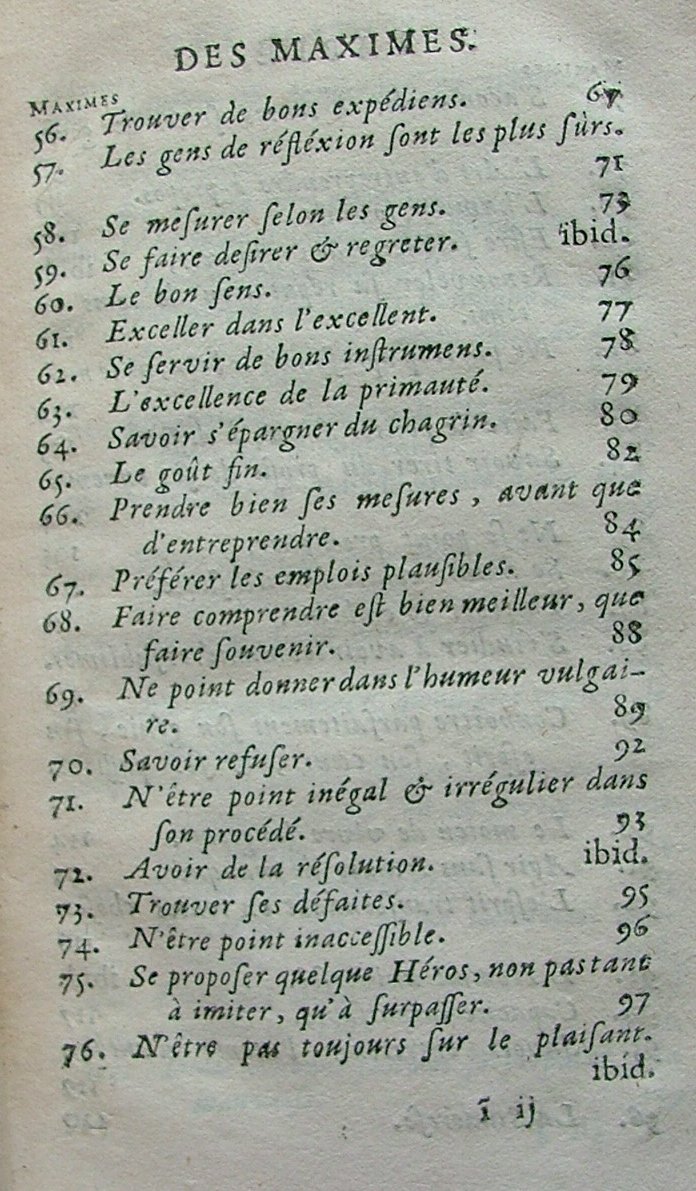 DES MAXIMES.
MAXIMES
56. Trouver de bons expédiens. 67
57. Les gens de réfléxion ſont les plus ſûrs.
71
58. Se meſurer ſelon les gens. 73
59. Se faire deſirer & regreter. ibid.
60. Le bon ſens. 76
61. Exceller dans l'excellent. 77
62. Se ſervir de bons inſtrumens. 78
63. L'excellence de la primauté. 79
64. Savoir s'épargner du chagrin. 80
65. Le goût fin. 82
66. Prendre bien ſes meſures, avant que
d'entreprendre. 84
67. Préférer les emplois plauſibles. 85
68. Faire comprendre eſt bien meilleur, que
faire ſouvenir. 88
69. Ne point donner dans l'humeur vulgai-
re. 89
70. Savoir refuſer. 92
71. N'être point inégal & irrégulier dans
ſon procédé. 93
72. Avoir de la réſolution. ibid.
73. Trouver ſes défaites. 95
74. N'être point inacceſſible. 96
75. Se propoſer quelque Héros, non pas tant
à imiter, qu'à ſurpaſſer. 97
76. N'être pas toujours ſur le plaiſant.
ibid.
ī ij